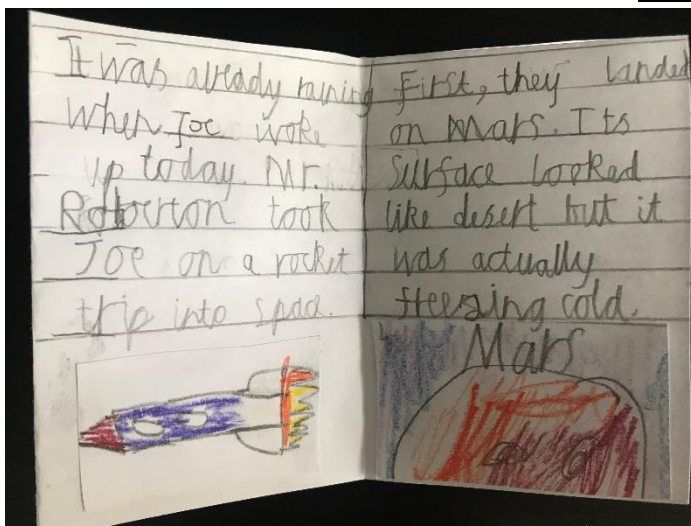 It was already raining
when Joe woke
up today. Mr.
Roberton took
Joe on a rocket
trip into space.
First, they landed
on Mars. Its
surface looked
like desert but it
was actually
freezing cold.
Mars